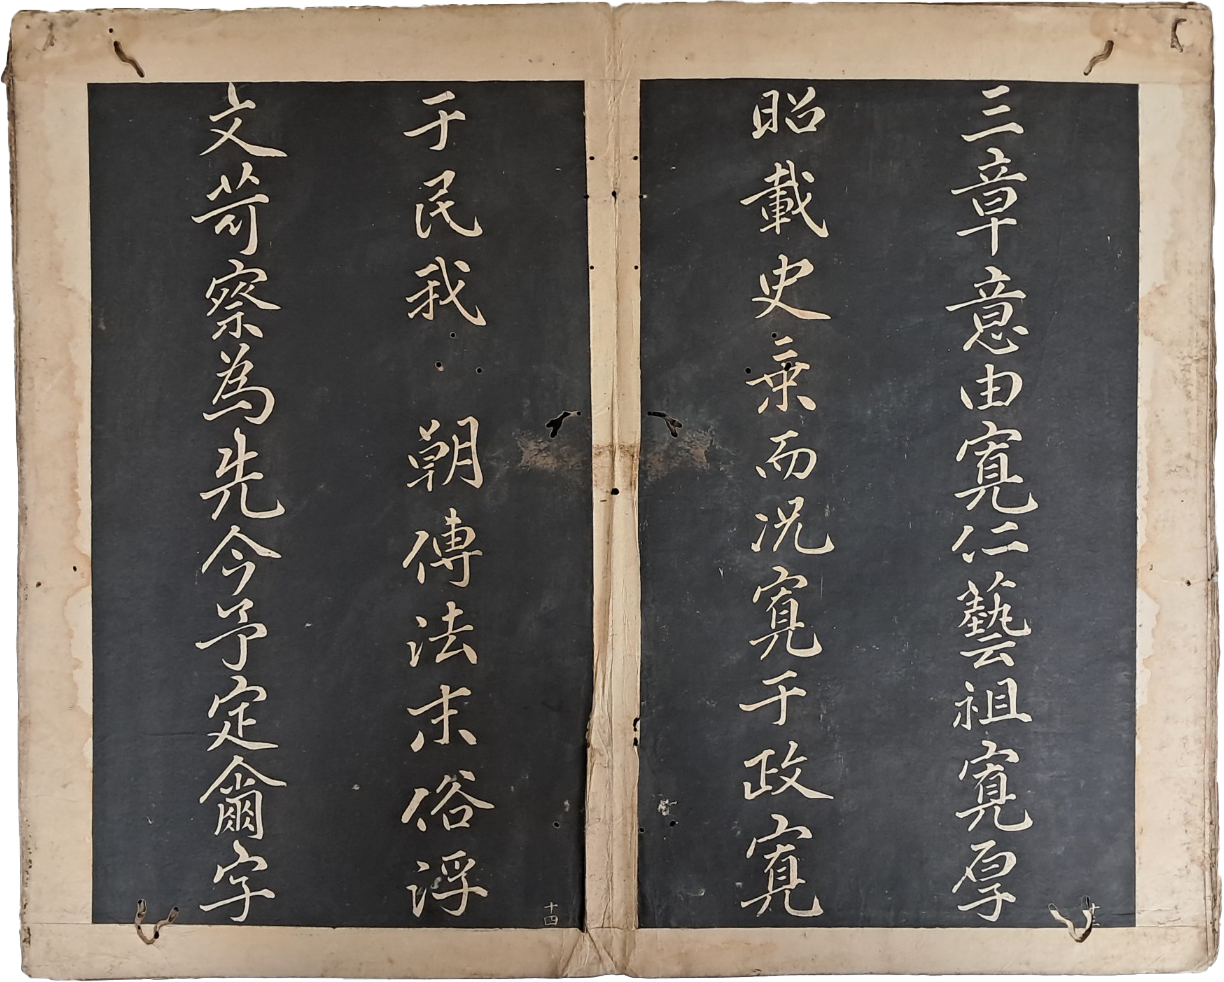 三章意由寬仁藝祖寬厚
昭載史乗而況寬于政寬
十三
于民我 朝傳法末俗浮
文苛察為先今予定爾字
十四